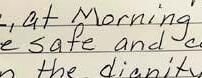 , at Morning
e safe and c
n the dignity